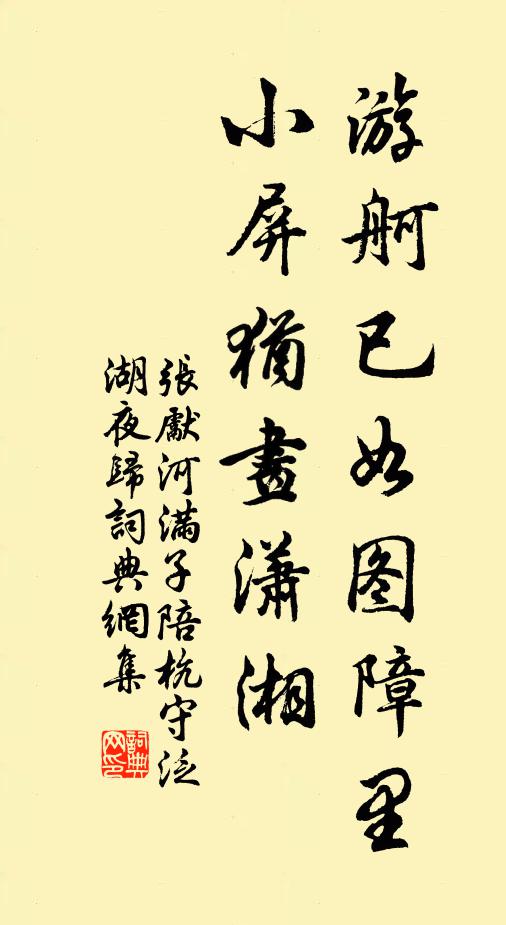 游舸已如图障里
小屏猶畫瀟湘
張獻河滿子陪杭守泛
湖夜歸詞典網集
詞典
网印